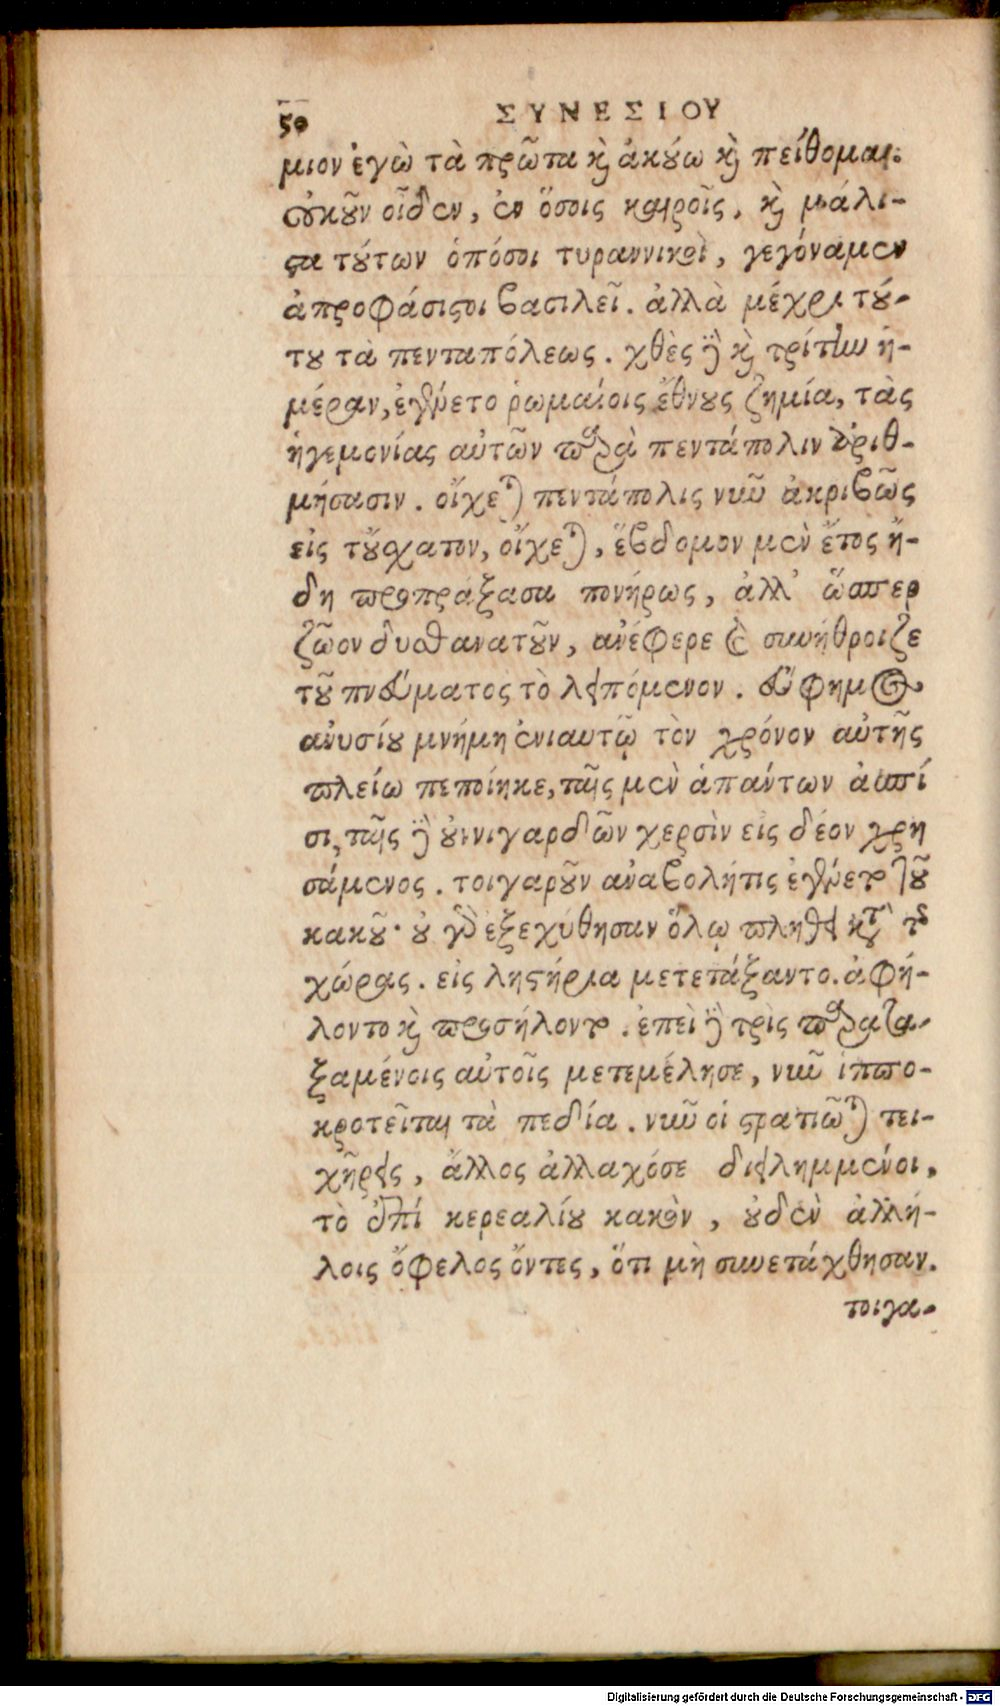 50 ΣΥΝΕΣΙΟΥ
μιον ἐγὼ τὰ πρῶτα καὶ ἀκούω καὶ πείθομαι.
οὐκοῦν οἶδεν, ἐν ὅσοις καιροῖς, καὶ μάλι-
στα τούτων ὁπόσοι τυραννικοὶ, γεγόναμεν
ἀπροφάσιστοι βασιλεῖ. ἀλλὰ μέχρι τού-
του τὰ πενταπόλεως. χθὲς δὲ καὶ τρίτην ἡ-
μέραν, ἐγένετο ῥωμαίοις ἔθνους ζημία, τὰς
ἡγεμονίας αὐτῶν παρὰ πεντάπολιν ἀριθ-
μήσασιν. οἴχεται πεντάπολις νῦν ἀκριβῶς
εἰς τοὔσχατον, οἴχεται, ἕβδομον μὲν ἔτος ἤ-
δη προπράξασα πονήρως, ἀλλ' ὥσπερ
ζῶον δυσθανατοῦν, ἀνέφερε καὶ συνήθροιζε
τοῦ πνεύματος τὸ λειπόμενον. εὔφημος
ἀνυσίου μνήμη ἐνιαυτῷ τὸν χρόνον αὐτῆς
πλείω πεποίηκε, ταῖς μὲν ἁπάντων ἀσπί
σι, ταῖς δὲ οὐννιγαρδῶν χερσὶν εἰς δέον χρη
σάμενος. τοιγαροῦν ἀναβολή τις ἐγένετο τοῦ
κακοῦ· οὐ γὰρ ἐξεχύθησαν ὅλῳ πλήθει κατὰ τῆς
χώρας. εἰς λῃστήρια μετετάξαντο. ἀφή-
λοντο καὶ προσήλοντο. ἐπεὶ δὲ τρὶς παρατα-
ξαμένοις αὐτοῖς μετεμέλησε, νῦν ἱππο-
κροτεῖται τὰ πεδία. νῦν οἱ στρατιῶται τει-
χήρεις, ἄλλος ἀλλαχόσε διειλημμένοι,
τὸ ἐπὶ κερεαλίου κακὸν, οὐδὲν ἀλλή-
λοις ὄφελος ὄντες, ὅτι μὴ συνετάχθησαν.
τοιγα-
Digitalisierung gefördert durch die Deutsche Forschungsgemeinschaft - DFG